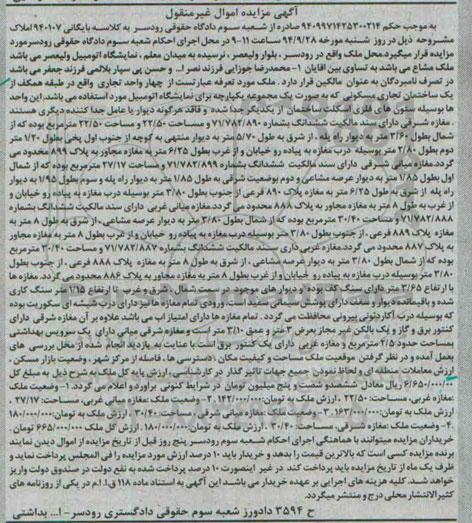 آگهی مزایده اموال غیرمنقول
به موجب حکم ۹۴۰۹۹۷۱۴۲۵۳۰۰۲۱۴ صادره از شعبه سوم دادگاه حقوقی رودسر به کلاسه بایگانی ۹۴۰۱۰۷ املاک
مشروحه ذیل در روز شنبه مورخه ۹۴/۹/۲۸ ساعت ۱۱-۹ در محل اجرای احکام شعبه سوم دادگاه حقوقی رودسر مورد
مزایده قرار میگیرد. محل ملک واقع در رودسر، بلوار ولیعصر، نرسیده به میدان معلم، نمایشگاه اتومبیل ولیعصر می باشد
ملک مشاع می باشد به تساوی بین آقایان ۱- محمدرضا جوزائی فرزند نصرا... و حسن پی سپار بلالمی فرزند جعفر می باشد
در تصرف نامبردگان به عنوان مالکین قرار دارد. ملک مورد تعرفه عبارتست از چهار واحد تجاری واقع در طبقه همکف از
یک ساختمان تجاری مسکونی که به صورت یک مجموعه یکپارچه برای نمایشگاه اتومبیل مورد استفاده می باشد. این واحد
ها بوسیله ستون های فلزی اسکلت ساختمان از یکدیگر جدا شده و فاقد هرگونه دیوار یا عامل جدا کننده دیگری هستند
. مغازه شرقی دارای سند مالکیت ششدانگ بشماره ۷۱/۷۸۲/۸۹۰ و مساحت ۲۲/۵۰ مترمربع بوده که از
شمال بطول ۳/۶۰ متر به دیوار راه پله. از شرق به طول ۵/۷۰ متر به دیوار منتهی به کوچه از جنوب اول پخی بطول ۱/۲۰ متر
دوم بطول ۲/۸۰ متر بوسیله درب مغازه به پیاده رو خیابان و از غرب بطول ۶/۲۵ متر به مغازه مجاور به پلاک ۸۹۹ محدود می
گردد. مغازه میانی شرقی دارای سند مالکیت ششدانگ بشماره ۷۱/۷۸۲/۸۹۹ و مساحت ۲۷/۱۷ مترمربع بوده که از شمال
اول بطول ۱/۸۵ متر به دیوار عرصه مشاعی و دوم بوضعیت شرقی به طول ۱/۸۵ متر به دیوار راه پله و سوم بطول ۱/۹۵ به دیوار
راه پله از شرق به طول ۶/۲۵ متر به مغازه پلاک ۸۹۰ فرعی از جنوب بطول ۳/۸۰ متر بوسیله درب مغازه به پیاده رو خیابان و
از غرب به طول ۸ متر به مغازه مجاور به پلاک ۸۸۸ محدود می گردد. مغازه میانی غربی دارای سند مالکیت ششدانگ بشماره
۷۱/۷۸۲/۸۸۸ و مساحت ۳۰/۴۰ مترمربع بوده که از شمال بطول ۳/۸۰ متر به دیوار عرصه مشاعی. از شرق به طول ۸ متر به
مغازه پلاک ۸۸۹ فرعی. از جنوب بطول ۳/۸۰ متر بوسیله درب مغازه به پیاده رو خیابان و از غرب بطول ۸ متر به مغازه مجاور
به پلاک ۸۸۷ محدود می گردد. مغازه غربی دارای سند مالکیت ششدانگ بشماره ۷۱/۷۸۲/۸۸۷ و مساحت ۳۰/۴۰ مترمربع
بوده که از شمال بطول ۳/۸۰ متر به دیوار عرصه مشاعی. از شرق به طول ۸ متر به مغازه پلاک ۸۸۸ فرعی. از جنوب بطول
۳/۸۰ متر بوسیله درب مغازه به پیاده رو خیابان و از غرب بطول ۸ متر به مغازه مجاور به پلاک ۸۸۶ محدود می گردد. مغازه ها
با ارتفاع ۳/۶۵ متر دارای سنگ کف بوده و دیوار های موجود در سمت شمال، شرق و غرب با ارتفاع ۱/۱۵ متر سنگ کاری
شده و باقیمانده دیوار و سقف دارای پوشش می باشد. ورودی تمام مغازه ها دارای درب شیشه ای سکوریت بوده
که بوسیله درب آکاردئونی بیرونی محافظت می گردد. تمام مغازه ها دارای امتیاز آب می باشد علاوه بر آن مغازه شرقی دارای
کنتور برق و گاز و یک بالکن غیر مجاز بعرض ۳ متر و عمق ۳/۱۰ متر است و مغازه شرقی میانی دارای یک سرویس بهداشتی
بمساحت حدود ۲/۵ مترمربع و مغازه غربی دارای یک کنتور برق است با عنایت به بازدید انجام شده از محل بررسی های
بعمل آمده و در نظر گرفتن موقعیت ملک مساحت و کیفیت مکان دسترسی ها، فاصله از مرکز شهر، وضعیت بازار مسکن
ارزش معاملات منطقه ای و لحاظ نمودن جمیع جهات تاثیر گذار در کارشناسی، ارزش پایه کل ملک به شرح ذیل به مبلغ کل
۶/۶۵۰/۰۰۰/۰۰۰ ریال معادل ششصد و شصت و پنج میلیون تومان در شرایط کنونی برآورد و اعلام می گردد. ۱- وضعیت ملک
مغازه غربی، مساحت: ۲۲/۵۰ . ارزش ملک به تومان: ۱۴۲/۰۰۰/۰۰۰ ۲- وضعیت ملک :مغازه میانی غربی مساحت: ۲۷/۱۷ .
ارزش ملک به تومان: ۱۶۳/۰۰۰/۰۰۰ ۳- وضعیت ملک مغازه میانی شرقی مساحت: ۳۰/۴۰ . ارزش ملک به تومان: ۱۸۰/۰۰۰/۰۰۰
۴- وضعیت ملک :مغازه شرقی. مساحت: ۳۰/۴۰ . ارزش ملک به تومان: ۱۸۰/۰۰۰/۰۰۰ ارزش کل ملک ۶۶۵/۰۰۰/۰۰۰ تومان
خریداران مزایده میتوانند با هماهنگی اجرای احکام شعبه سوم رودسر پنج روز قبل از تاریخ مزایده از اموال دیدن نمایند
برنده مزایده کسی است که بالاترین قیمت را بدهد و خریدار باید ۱۰ درصد ارزش مورد مزایده را فی المجلس پرداخت نماید و
ظرف یک ماه از تاریخ مزایده باید پرداخت کند در غیر اینصورت ۱۰ درصد پرداخت شده به نفع دولت در صندوق دولت واریز
خواهد شد. کلیه هزینه های اجرایی بر عهده خریدار می باشد. این آگهی به استناد ماده ۱۱۸ ق.ا.م در یکی از روزنامه های
کثیرالانتشار محلی درج و منتشر میگردد.
ح ۳۵۹۴ دادورز شعبه سوم حقوقی دادگستری رودسر- ا... بداشتی